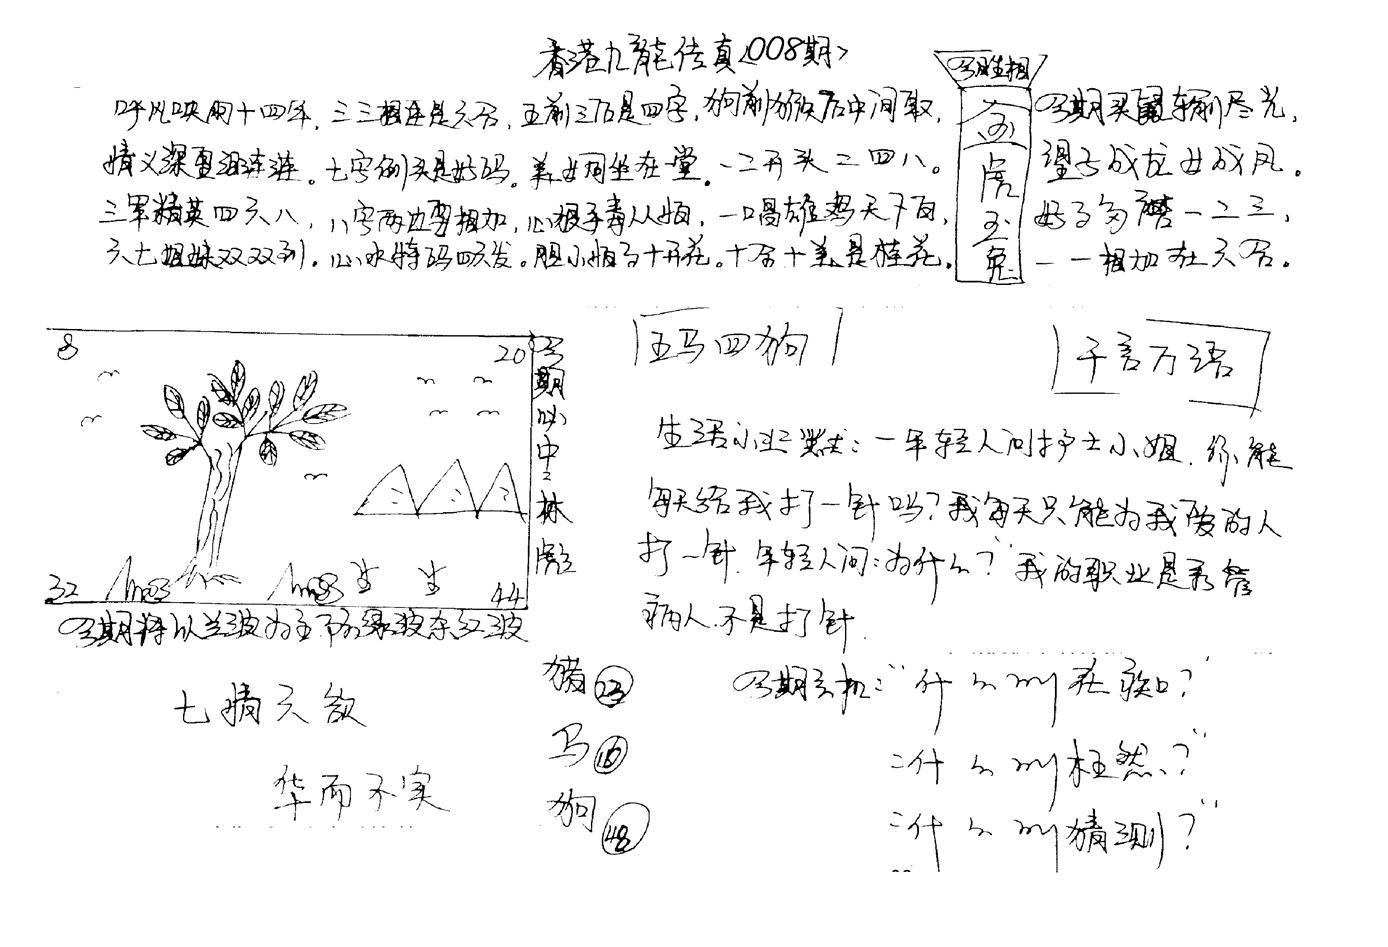 香港九龍传真<008期>
呼风唤雨十四年，三三相连是六合，五前三后是四字，狗前猴后中间取，
情义深重泪连连。七字例头是好码。美女同坐在堂。一二开头二四八。
三军精英四六八，八字两边要相加，心狠手毒人人怕，一唱雄鸡天下白，
六七姐妹双双到。心水特码四六发。胆小怕了十开花。十合十美是桂花。
今期买 尽光，
望子成龙女成凤。
好了多磨一二三，
一一相加在六合。
虎
兔
8
20
32
44
今期必中:林虎
今期特以兰波为主 绿波 红波
五马四狗
千言万语
生活小 ：一年轻人问护士小姐，你能
每天给我打一针吗？我每天只能为我爱的人
打一针，年轻人问：为什么？我的职业是看管
病人，不是打针，
七情六欲
华而不实
猪 23
马
狗 48
今期玄机：“什么叫 ？”
“什么叫枉然？”
“什么叫猜测？”